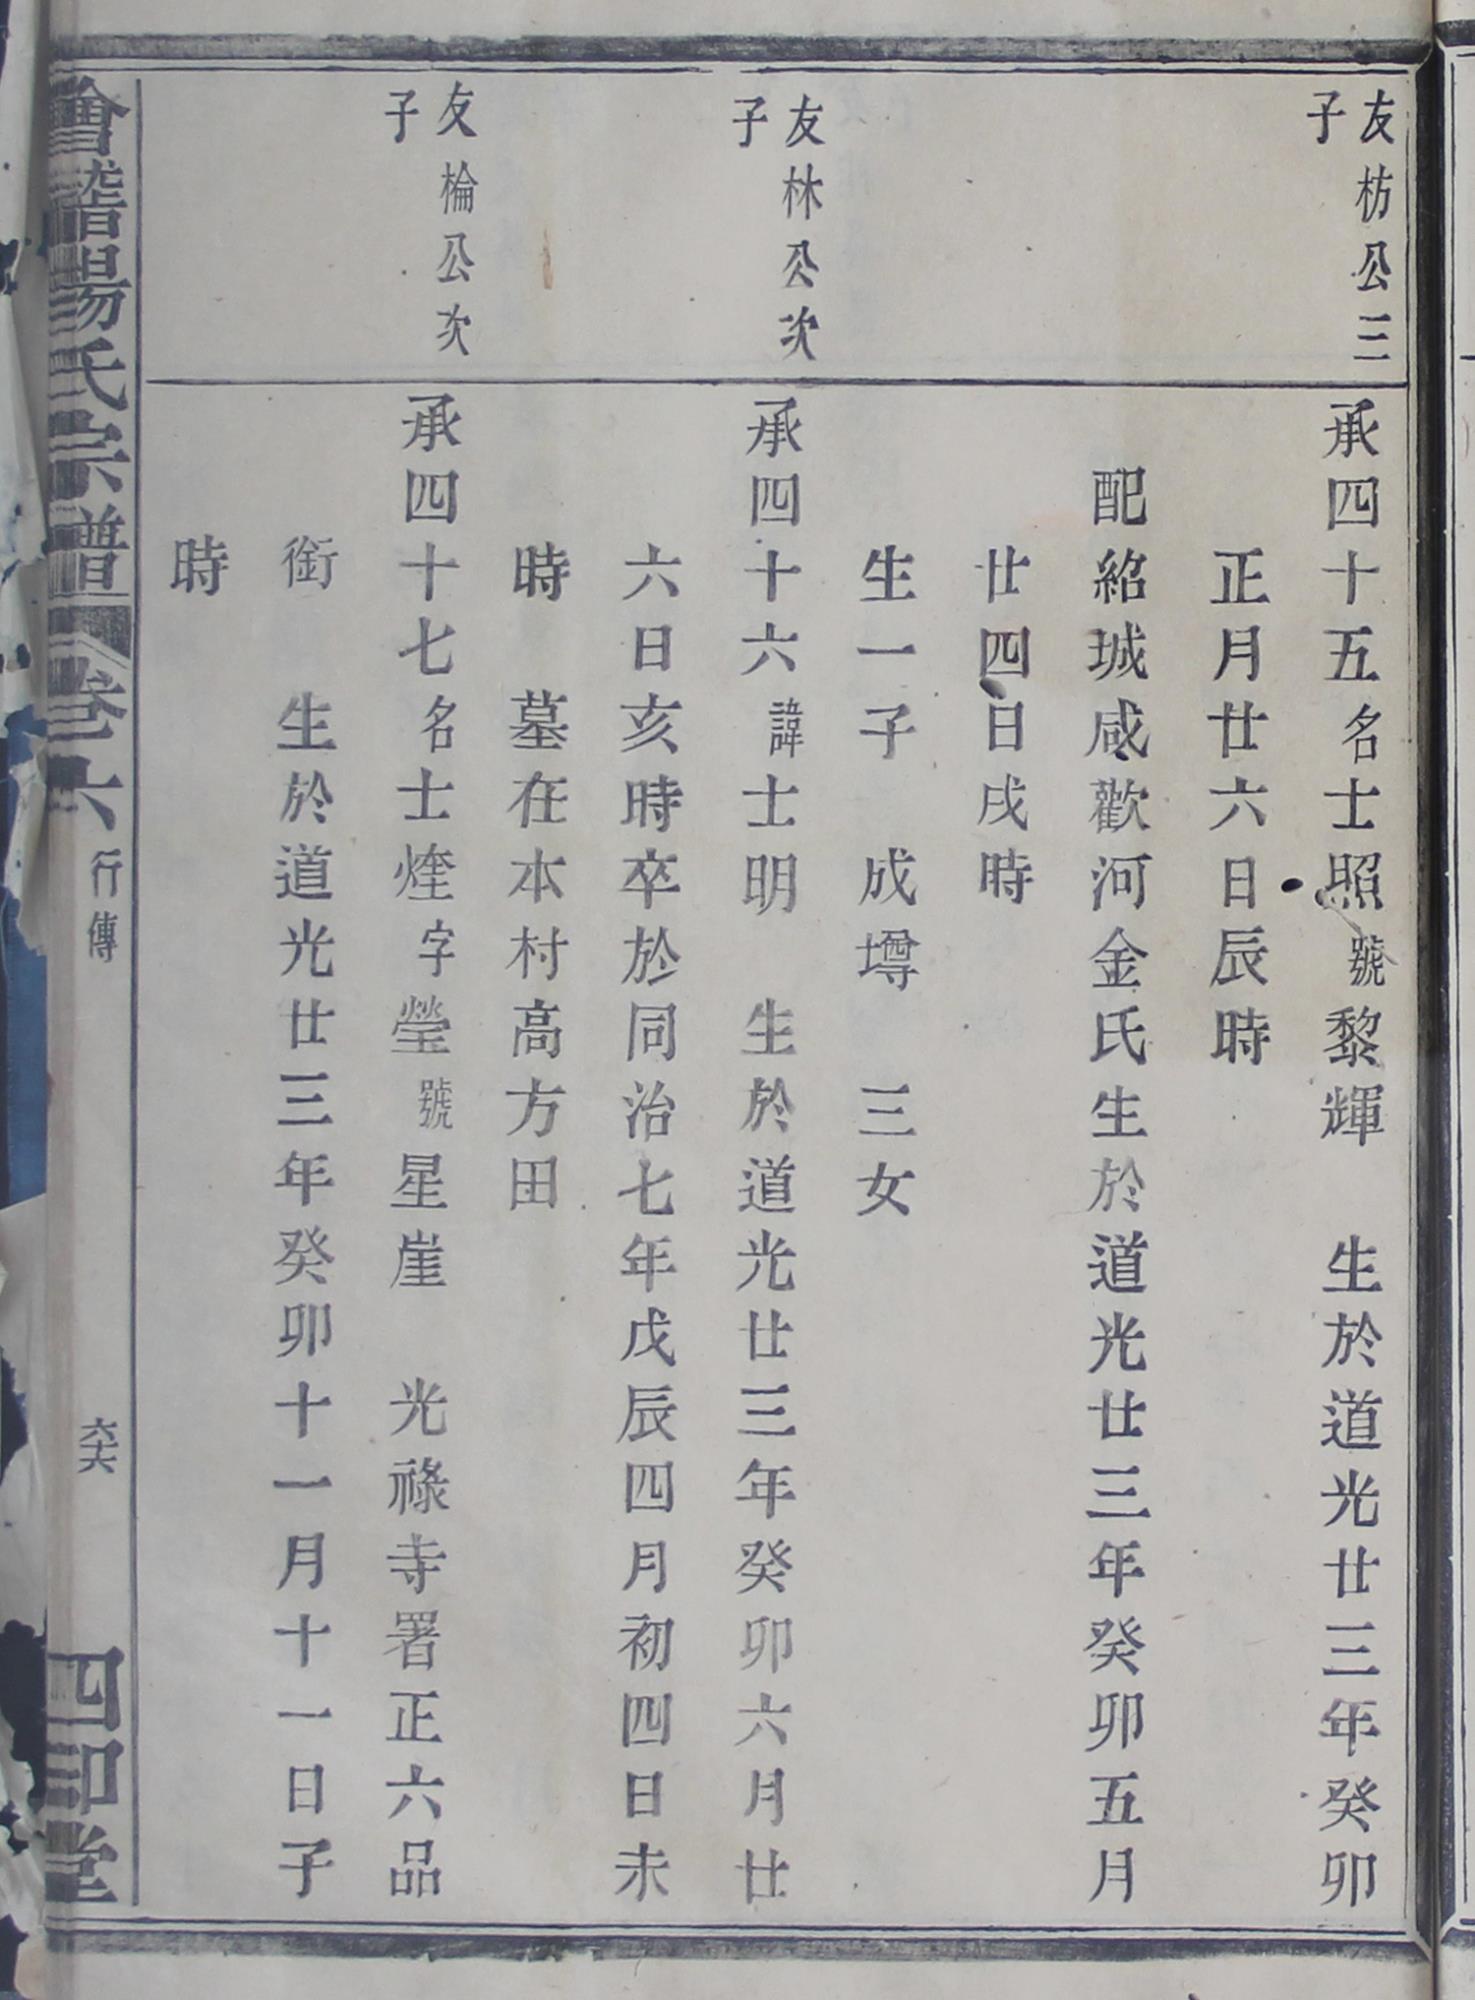 友枋公三
子
承四十五名士照號黎輝　生於道光廿三年癸卯
正月廿六日辰時
配紹城咸歡河金氏生於道光廿三年癸卯五月
廿四日戌時
生一子　成壿　三女
友林公次
子
承四十六諱士明　生於道光廿三年癸卯六月廿
六日亥時卒於同治七年戊辰四月初四日未
時　墓在本村高方田
友棆公次
子
承四十七名士煃字瑩號星崖　光祿寺署正六品
銜　生於道光廿三年癸卯十一月十一日子
時
會稽陽氏宗譜　卷六　行傳　六十六　四印堂